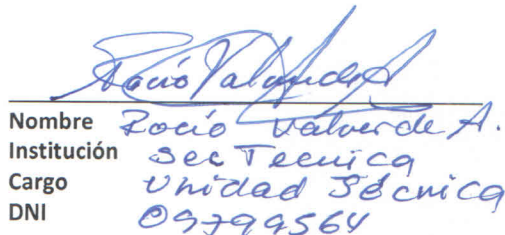 Rocío Valverde A
Nombre Rocío Valverde A.
Institución Sec Tecnica
Cargo Unidad Técnica
DNI 09799564